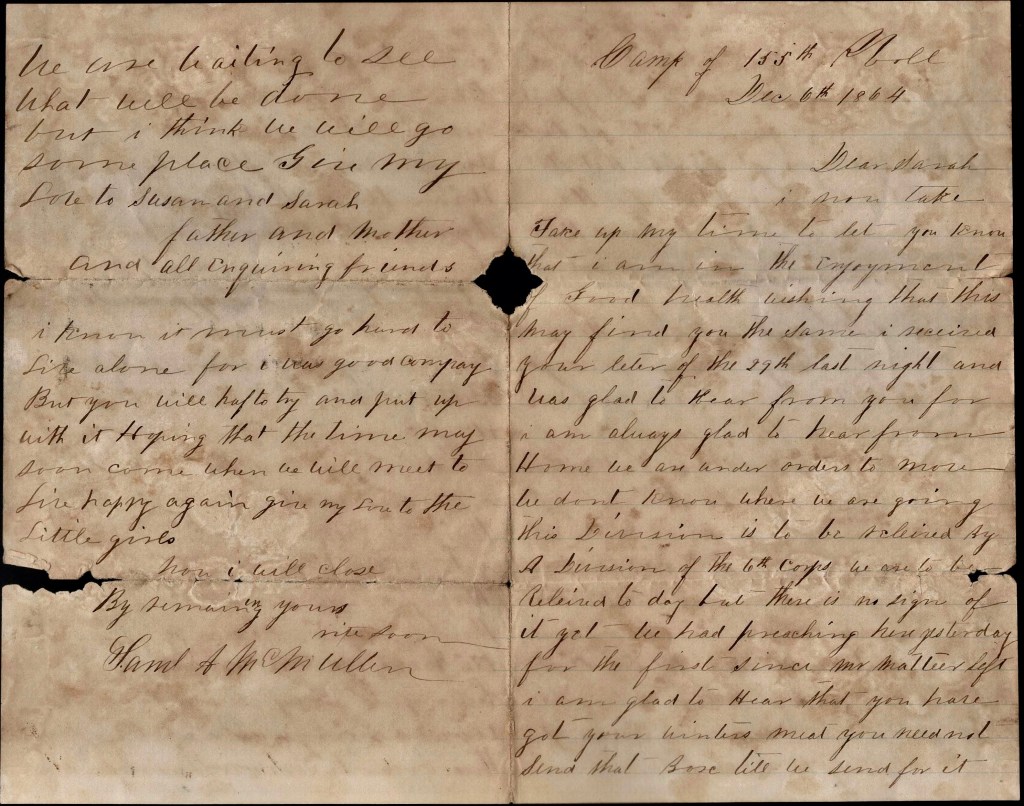 Camp of 155th P Voll
Dec 6th 1864
Dear Sarah
i now take
Take up my time to let you know
that i am in the enjoyment
of Good health wishing that this
may find you the same i received
your leter of the 29th last night and
was glad to hear from you for
i am always glad to hear from
Home we are under orders to move
we dont know where we are going
this Division is to be releived by
A Division of the 6th Corps we are to be
Releived to day but there is no sign of
it yet we had preaching here yesterday
for the first since Mr left
i am glad to Hear that you have
got your winters meat you need not
send that Box till we send for it
We are waiting to see
what will be done
but i think we will go
some place Give my
Love to Susan and Sarah
father and Mother
and all enquiring friends
i know it must go hard to
Live alone for i was good compay
But you will hafto try and put up
with it Hoping that the time may
soon come when we will meet to
Live happy again give my Love to the
Little girls
now i will close
By remaining yours
rite soon
Saml A McMullen